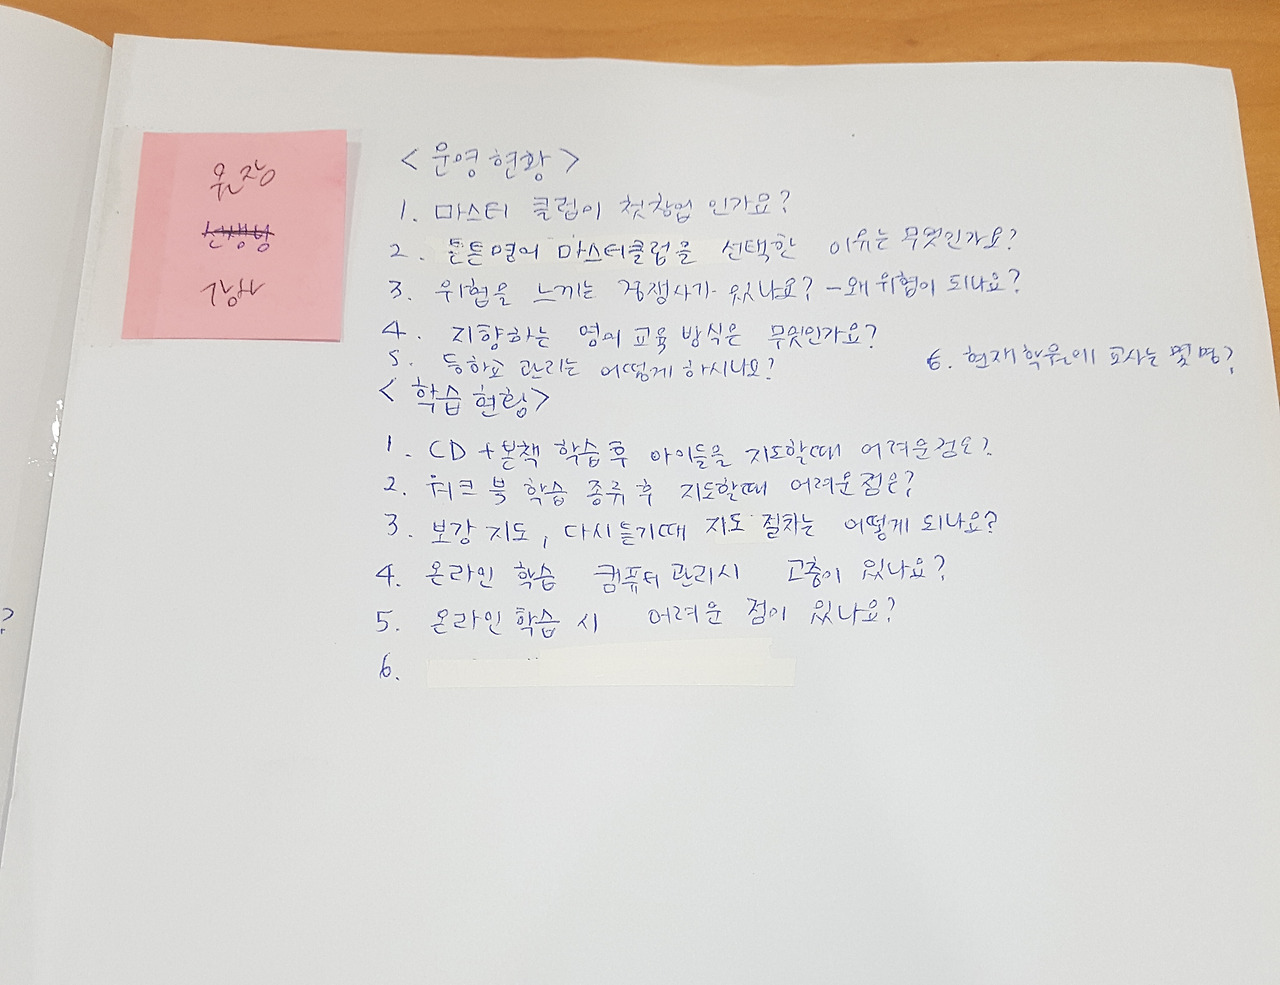 원장
선생님
강사
< 운영 현황 >
1. 마스터 클럽이 첫창업 인가요?
2. 튼튼영어 마스터클럽을 선택한 이유는 무엇인가요?
3. 위협을 느끼는 경쟁사가 있나요? - 왜 위협이 되나요?
4. 지향하는 영어 교육 방식은 무엇인가요?
5. 등하교 관리는 어떻게 하시나요?
6. 현재 학원에 교사는 몇 명?
< 학습 현황 >
1. CD + 본책 학습 후 아이들을 지도할때 어려운점은?
2. 워크 북 학습 종류 후 지도할때 어려운점은?
3. 보강 지도, 다시 듣기때 지도 절차는 어떻게 되나요?
4. 온라인 학습 컴퓨터 관리시 고충이 있나요?
5. 온라인 학습 시 어려운 점이 있나요?
6.
?